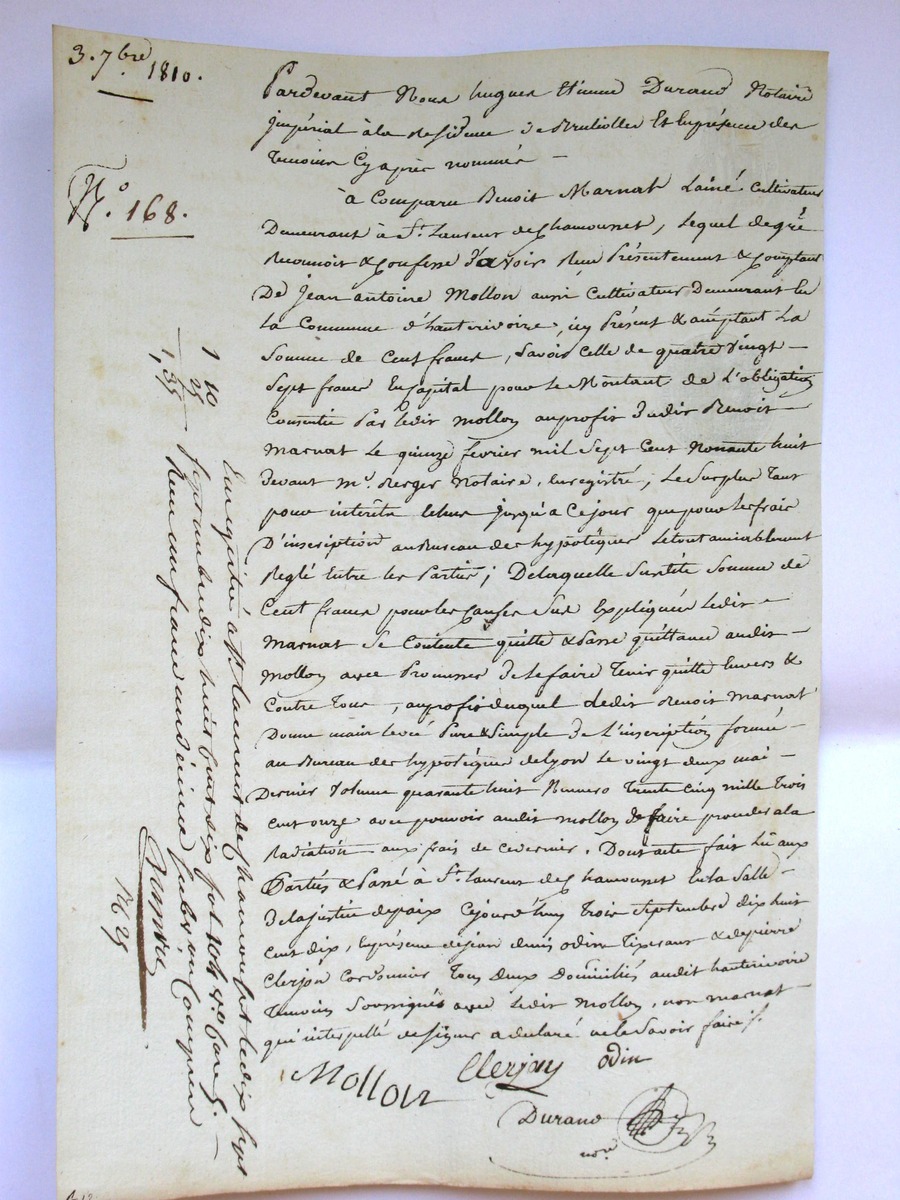 3. 7bre 1810.
N.° 168.
Pardevant Nous hugues Etienne Durand Notaire
jmpérial à la Residence de Brulliolles Et En présence des
Temoins Cy après nommés —
à Comparu Benoit Marnat L'aîné Cultivateur
Demeurant à St. Laurent de Chamousset, Lequel de gré
Reconnoit & Confesse d'avoir Reçu Présentement & Comptant
De jean antoine Mollon aussi Cultivateur Demeurant En
La Commune d'hauterivoire, icy Présent & acceptant La
Somme de Cent francs, Savoir Celle de quatre Vingt —
Sept francs En Capital pour le Montant de L'obligation
Consentie Par ledit Mollon au profit dudit Benoit —
Marnat le quinze fevrier mil Sept Cent Nonante huit
devant Me. Berger Notaire, Enregistré, Le Surplus Tant
pour interêts échus jusqu'a Ce jour que pour les frais
D'inscription au Bureau des hypotêques Le tout amiablement
Reglé Entre les Parties; De laquelle Susdite Somme de
Cent francs pour les Causes Sus Expliquées Ledit —
Marnat Se Contente quitte & Passe quittance audit —
Mollon avec Promesse de le faire Tenir quitte Envers &
Contre Tous, au profit duquel Ledit Benoit Marnat
Donne main levée Pure & Simple de L'inscription formée —
au Bureau des hypotêques de Lyon Le vingt deux mai —
Dernier Volume quarante huit Numero Trente Cinq mille Trois
Cent onze avec pouvoir audit Mollon de faire proceder a la
Radiation aux frais de ce dernier. Dont acte fait Lû aux
Parties & Passé à St. Laurent de Chamousset En la Salle —
De la justice de paix Cejourd'huy Trois Septembre dix huit
Cent dix, En présence de jean denis odin Tixerant & de pierre
Clerjon Cordonnier Tous deux Domiciliés audit hauterivoire
Temoins Soussignés avec Ledit Mollon, non Marnat —
qui interpellé de Signer a declaré ne le Savoir faire ./.
Mollon Clerjon odin
Durand
nore
Enregistré à St. Laurent de Chamousset le dix Sept
Septembre dix huit Cent dix fol. 104
Reçu un franc un décime
1 10
25
1, 35